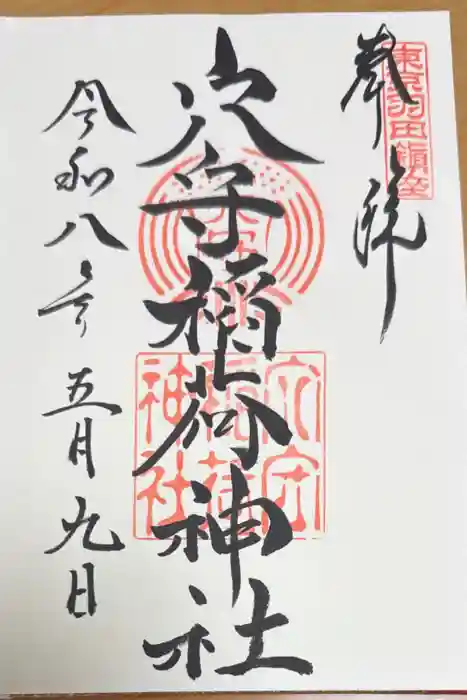 奉拝
東京羽田鎮座
穴守稲荷神社
穴守
稲荷
神社
令和八年五月九日